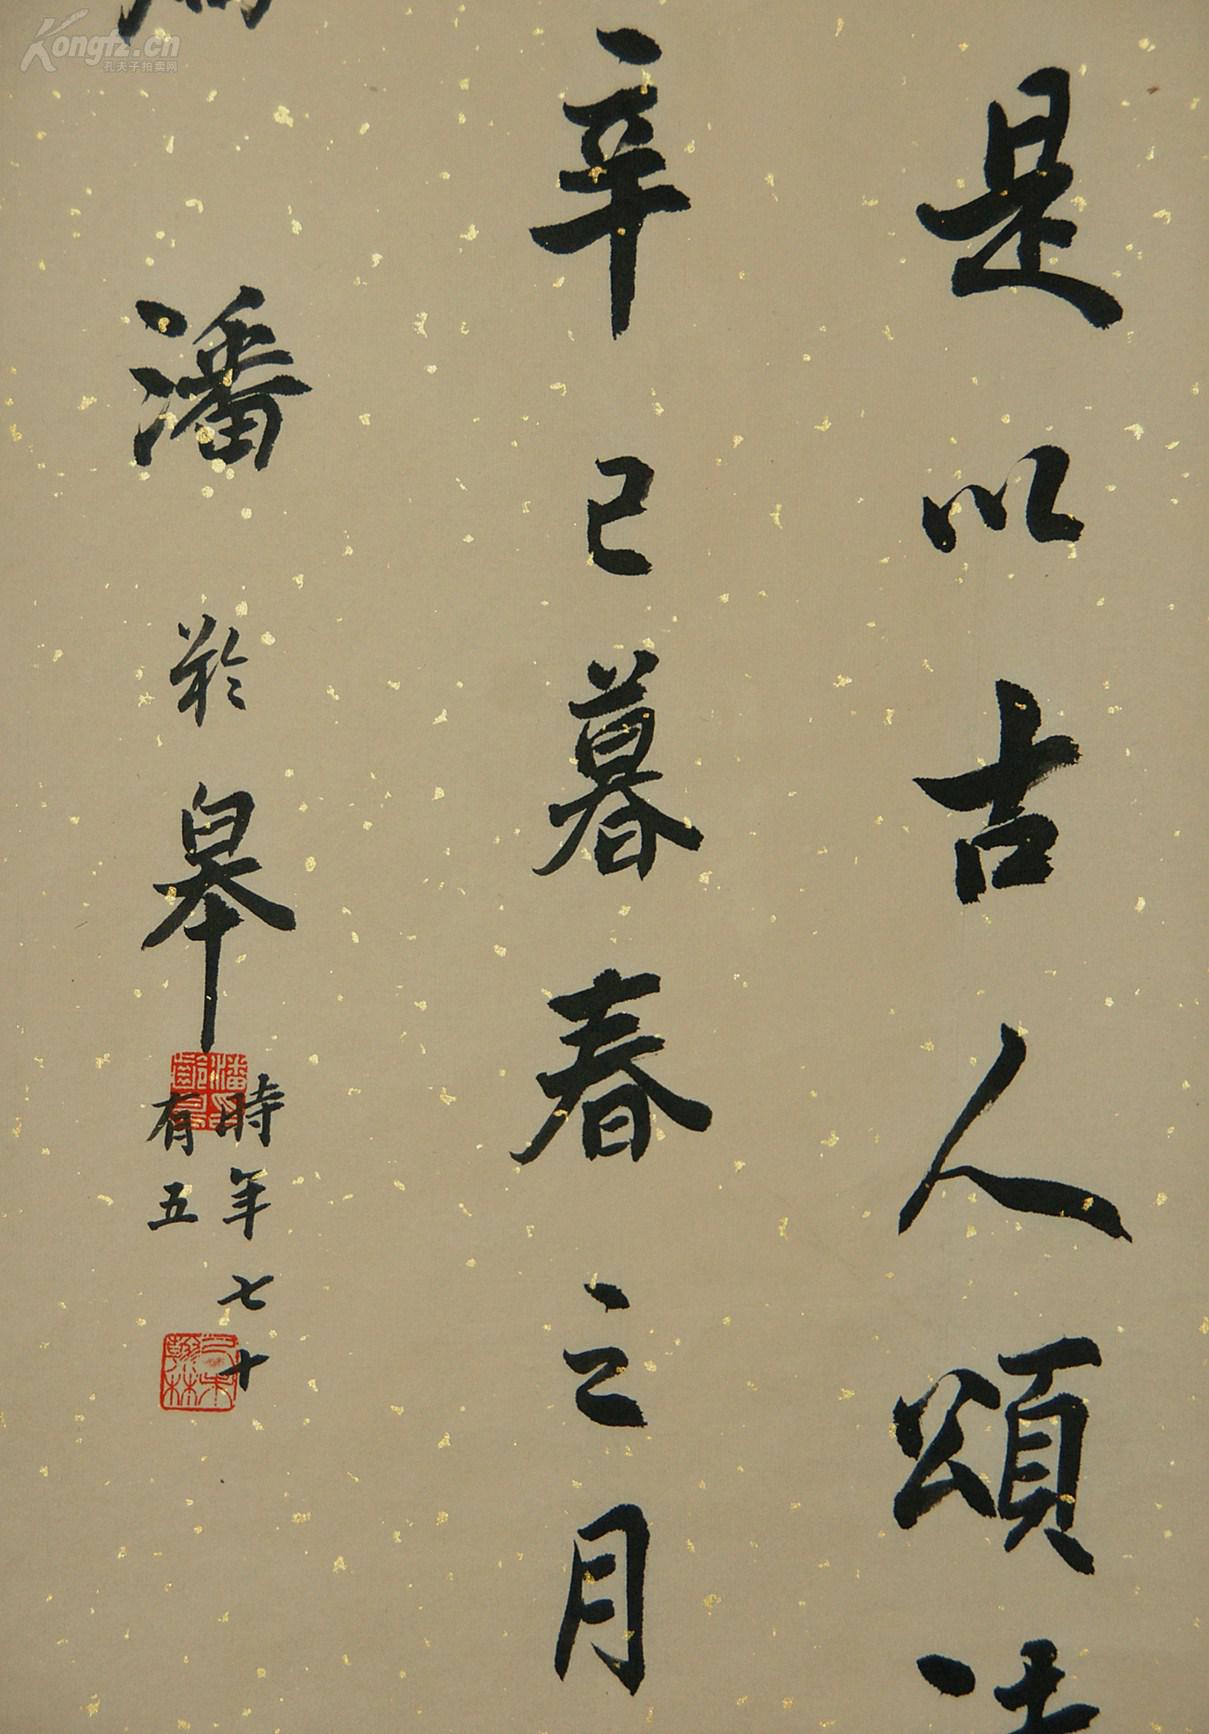 是以古人頌
辛巳暮春之月
潘齡皋
時年七十
有五
Kongfz.cn
孔夫子拍卖网